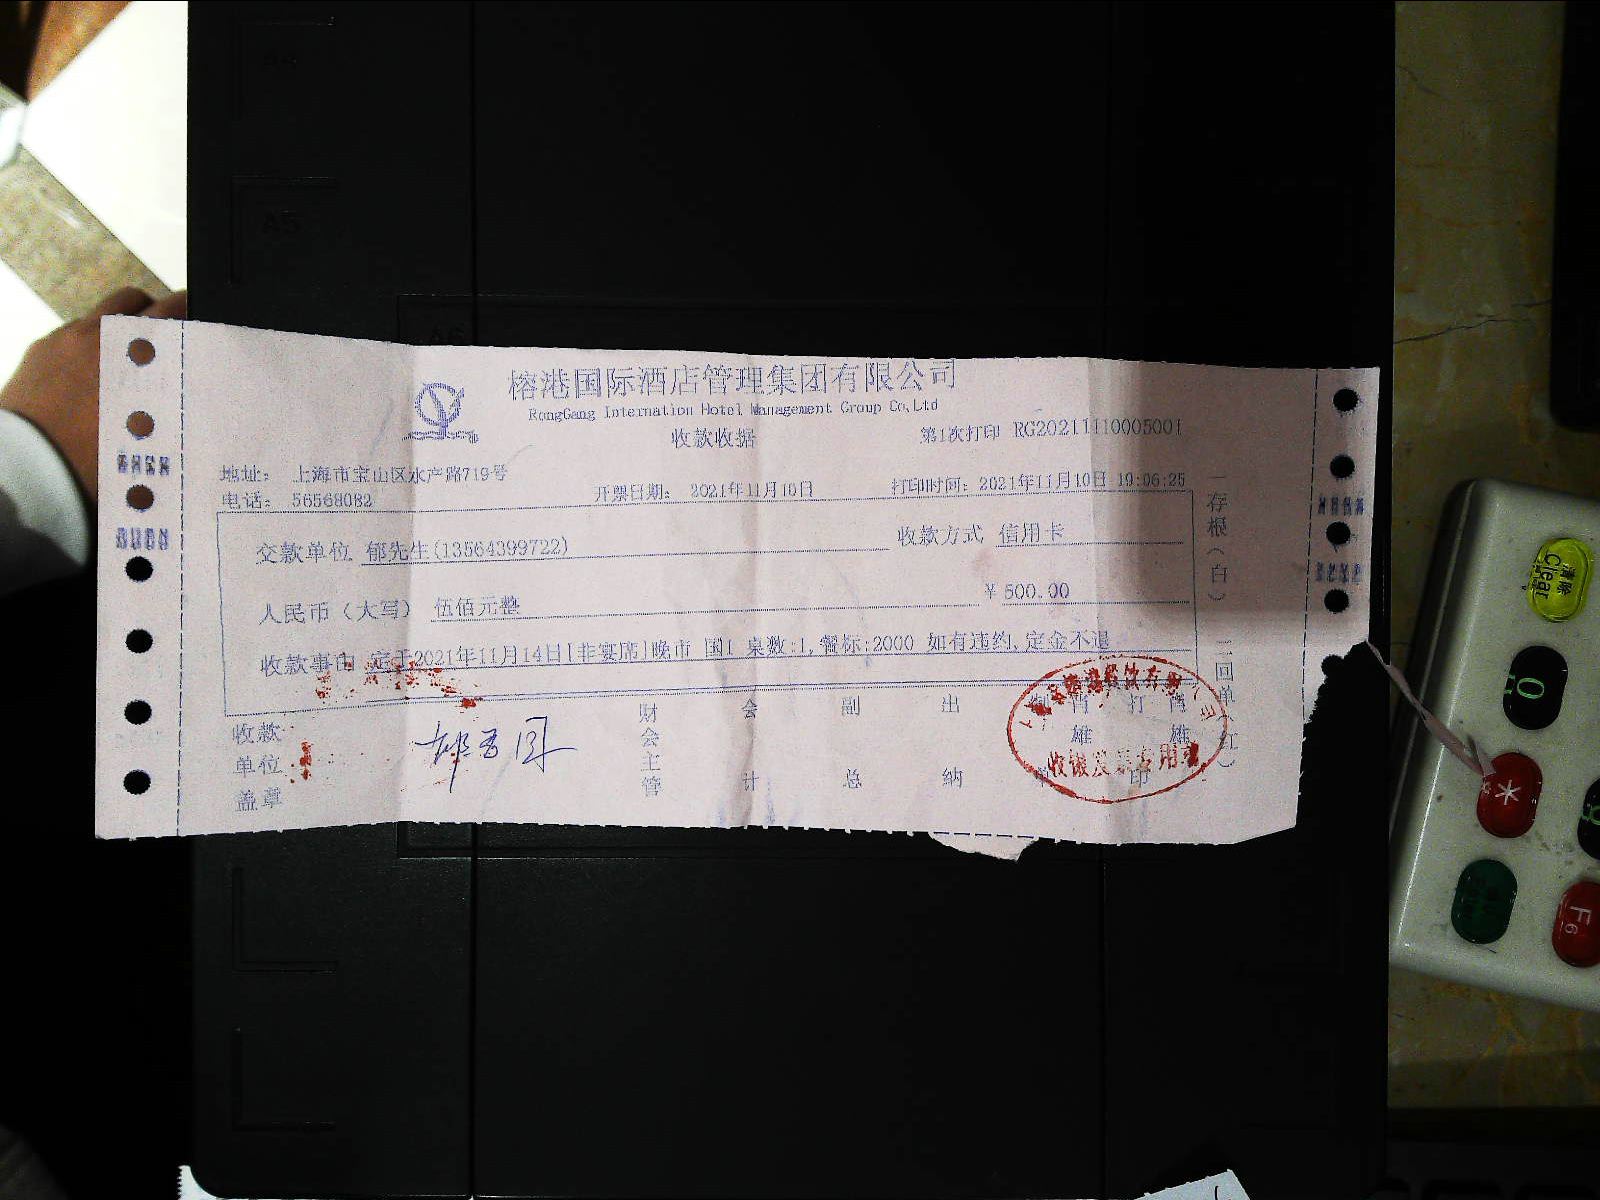 榕港国际酒店管理集团有限公司
RongGang Internation Hotel Management Group Co,Ltd
收款收据
第1次打印 RG20211110005001
地址： 上海市宝山区水产路719号
电话： 56568082
开票日期： 2021年11月10日
打印时间：2021年11月10日 19:06:25
交款单位 郁先生(13564399722)
收款方式 信用卡
人民币（大写） 伍佰元整
￥500.00
收款事由 定于2021年11月14日[非宴席]晚市 国1 桌数:1,餐标:2000 如有违约,定金不退
收款单位盖章
财会主管
会计
副总
出纳
一存根（白）
二回单（红）
A5
清除
Clear
0
*
F6